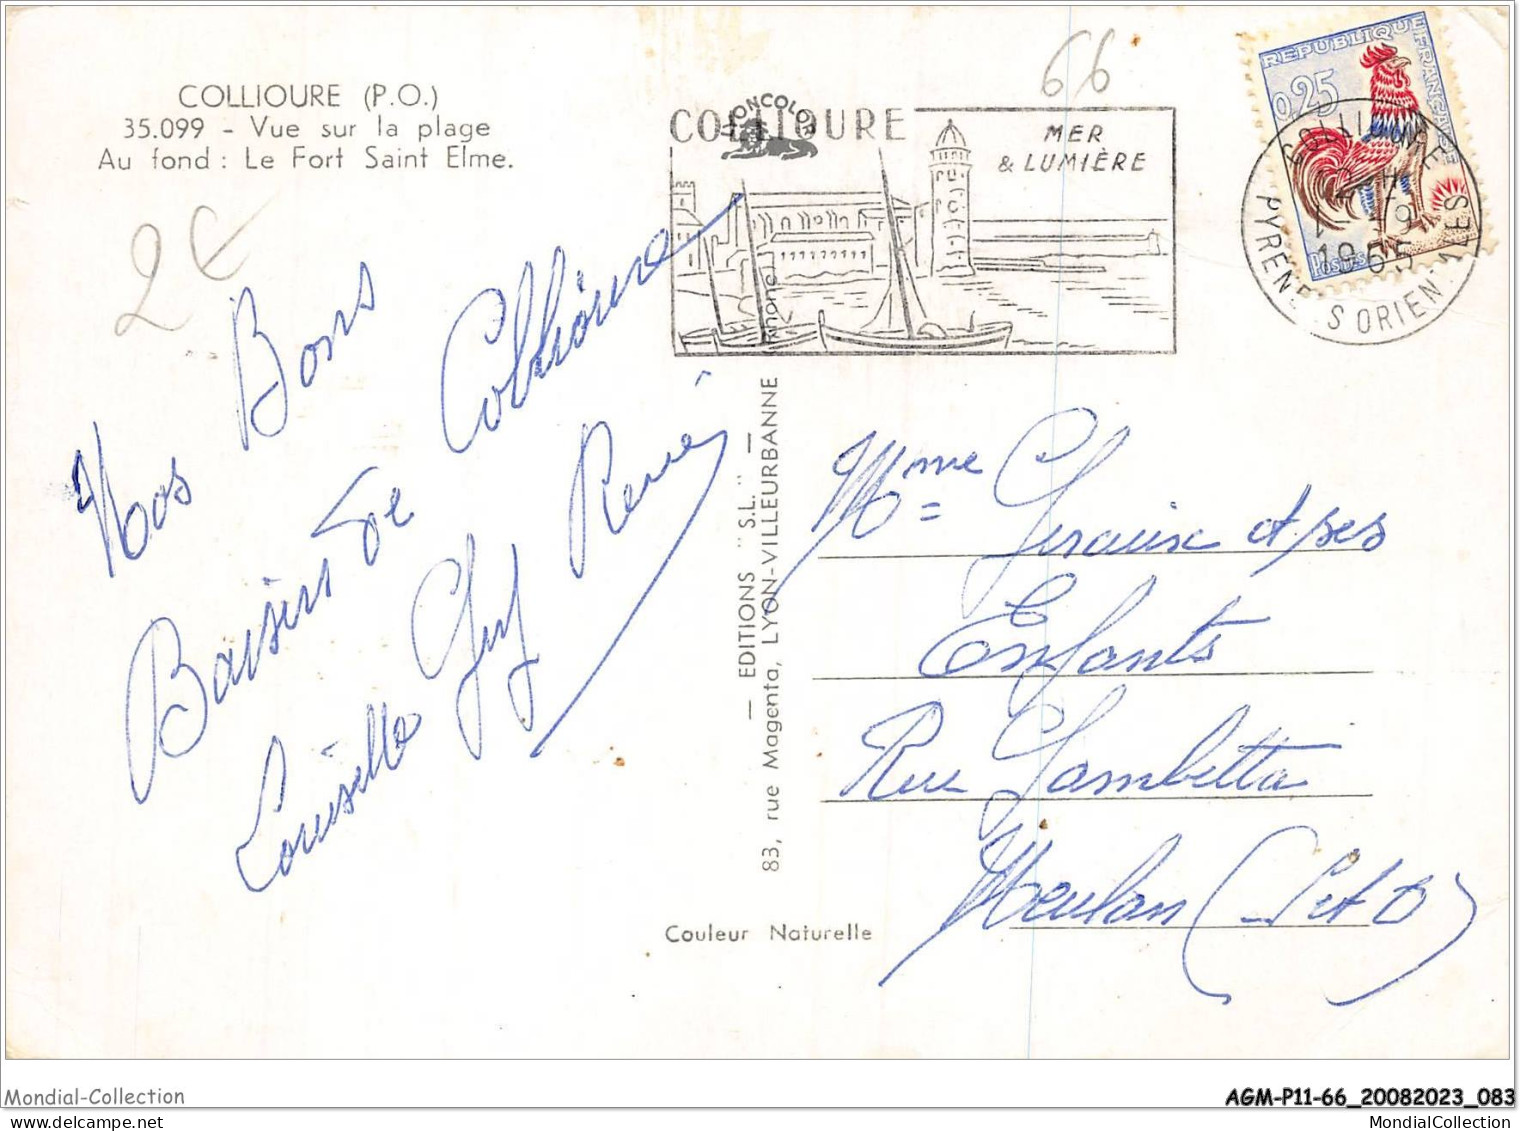 COLLIOURE (P.O.)
35.099 - Vue sur la plage
Au fond : Le Fort Saint Elme.
2€
Nos Bons
Baisers de Collioure
Louisette Guy René
66
COLLIOURE
MER
& LUMIÈRE
REPUBLIQUE FRANÇAISE
0,25
Postes
COLLIOURE
1965
PYRENEES ORIENTALES
— EDITIONS "S.L." —
83, rue Magenta, LYON-VILLEURBANNE
Couleur Naturelle
Mme Giraux et ses
Enfants
Rue Gambetta
Meulan (S et O)
Mondial-Collection
AGM-P11-66_20082023_083
MondialCollection